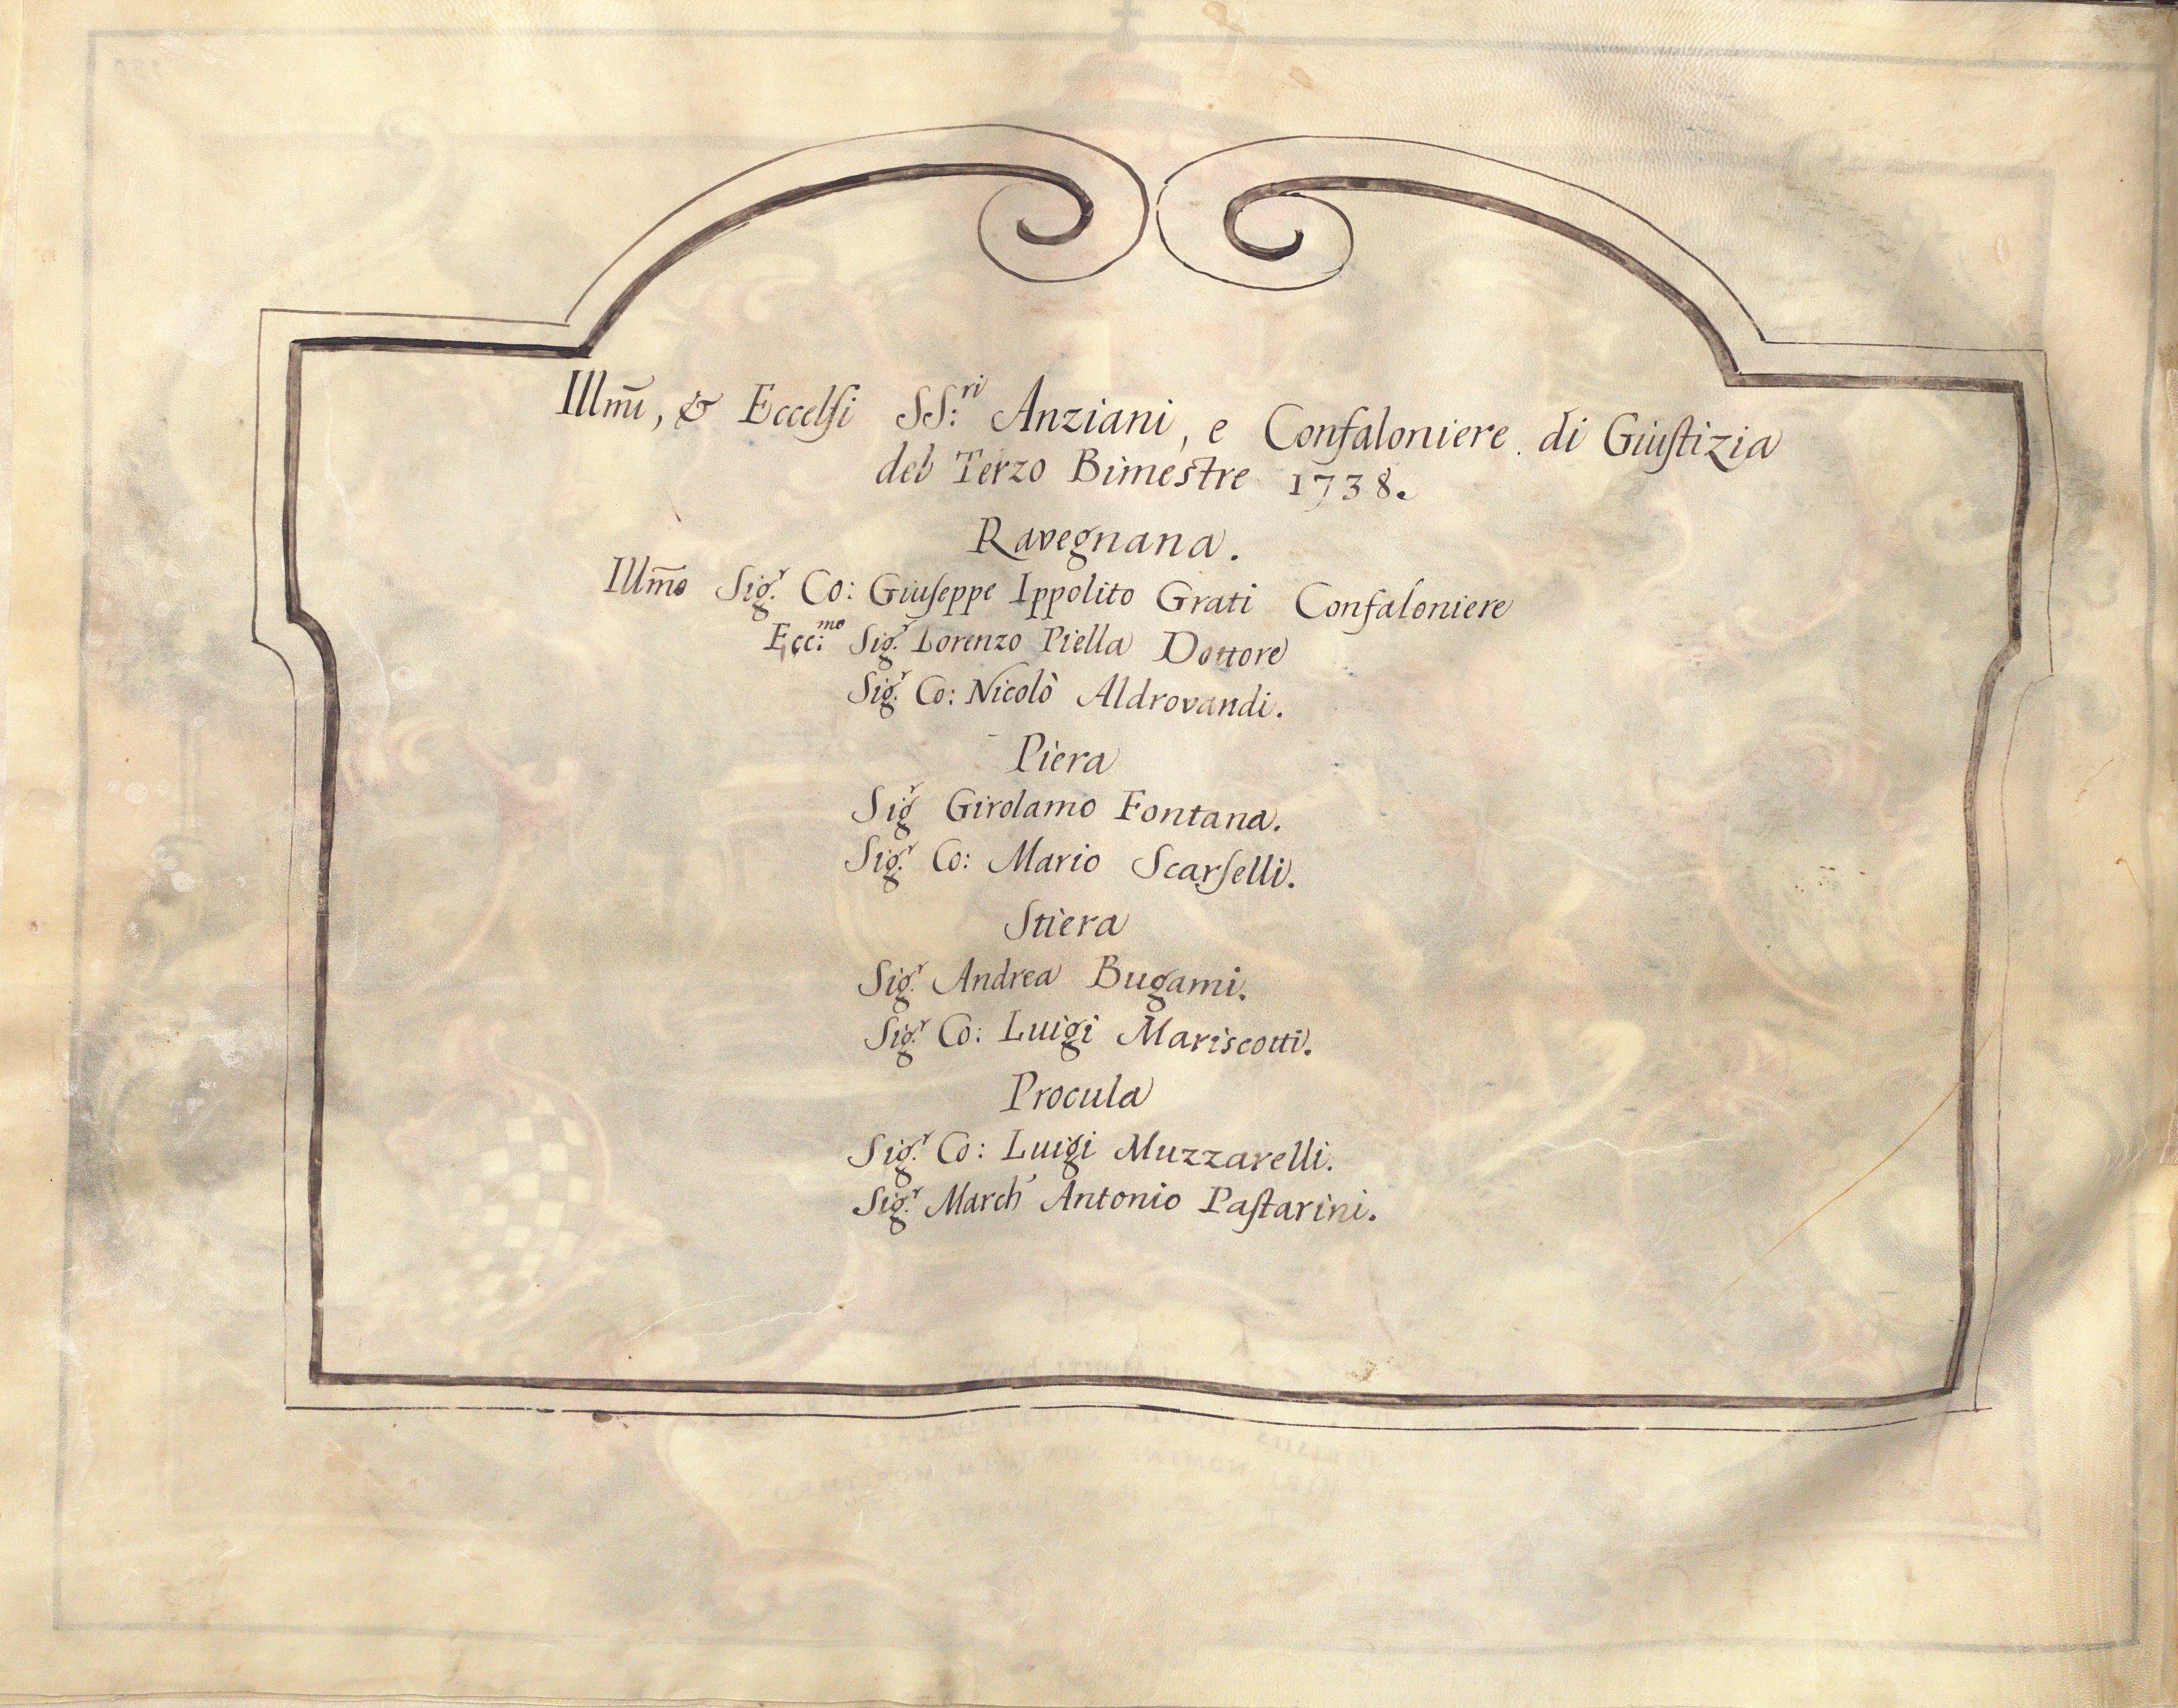 Illm̃i, & Eccelsi SS:ri Anziani, e Confaloniere di Giustizia
del Terzo Bimestre 1738.
Ravegnana.
Illm̃o Sig.r Co: Giuseppe Ippolito Grati Confaloniere
Ecc:mo Sig.r Lorenzo Piella Dottore
Sig.r Co: Nicolò Aldrovandi.
Piera
Sigr Girolamo Fontana.
Sig.r Co: Mario Scarselli.
Stiera
Sig.r Andrea Bugami.
Sig.r Co: Luigi Mariscotti.
Procula
Sig.r Co: Luigi Muzzarelli.
Sig.r March' Antonio Pastarini.